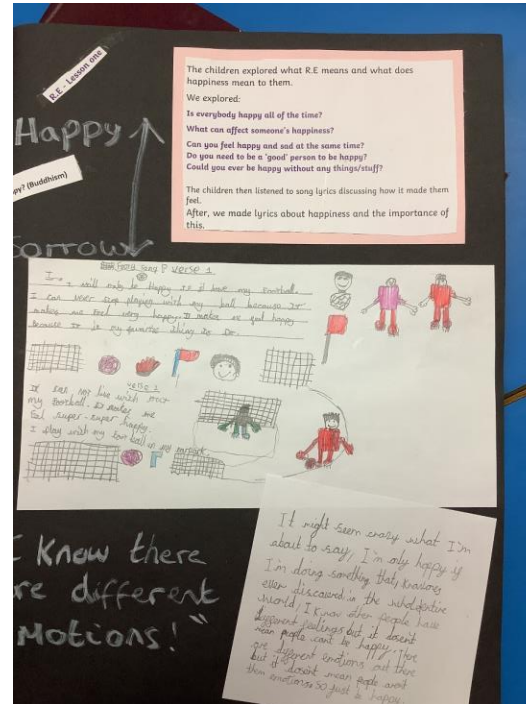 R.E - Lesson one
The children explored what R.E means and what does
happiness mean to them.
We explored:
Is everybody happy all of the time?
What can affect someone's happiness?
Can you feel happy and sad at the same time?
Do you need to be a 'good' person to be happy?
Could you ever be happy without any things/stuff?
The children then listened to song lyrics discussing how it made them
feel.
After, we made lyrics about happiness and the importance of
this.
Happy
py? (Buddhism)
Sorrow
verse 1
I will only be happy if I have my football.
I can never stop playing with my ball because it
makes me feel very happy. It makes me feel happy
because it is my favorite thing to do.
verse 2
I can not live with out
my football. It makes me
feel super-super happy.
I play with my football in my
It might seem crazy what I'm
about to say, I'm only happy if
I'm doing something that,
ever discovered in the whole entire
world, I know other people have
different feelings but it doesn't
mean people cant be happy. There
are different emotions out there
but it doesn't mean people
them emotions so just be happy.
I know there
are different
MOTIONS!"